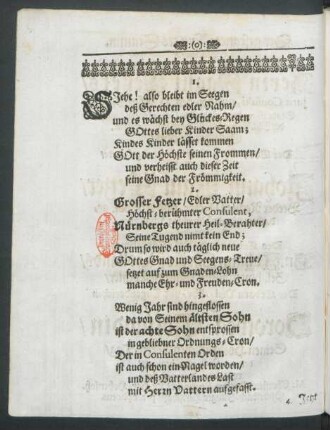 :(o):
1.
SJehe! also bleibt im Seegen
deß Gerechten edler Nahm/
und es wächst bey Glückes-Regen
GOttes lieber Kinder Saam;
Kindes Kinder lässet kommen
GOtt der Höchste seinen Frommen/
und verheisst auch dieser Zeit
seine Gnad der Frömmigkeit.
2.
Grosser Fetzer/ Edler Vatter/
Höchst-berühmter Consulent,
Nürnbergs theurer Heil-Berahter/
Seine Tugend nimt kein End;
Drum so wird auch täglich neue
GOttes Gnad und Seegens-Treue/
setzet auf zum Gnaden-Lohn
manche Ehr- und Freuden-Cron.
3.
Wenig Jahr sind hingeflossen
da von Seinem ältsten Sohn
ist der achte Sohn entsprossen
in gebliebner Ordnungs-Cron/
Der in Consulenten Orden
ist auch schon ein Nagel worden/
und deß Vatterlandes Last
mit Herrn Vattern aufgefasst.
4. Jetzt